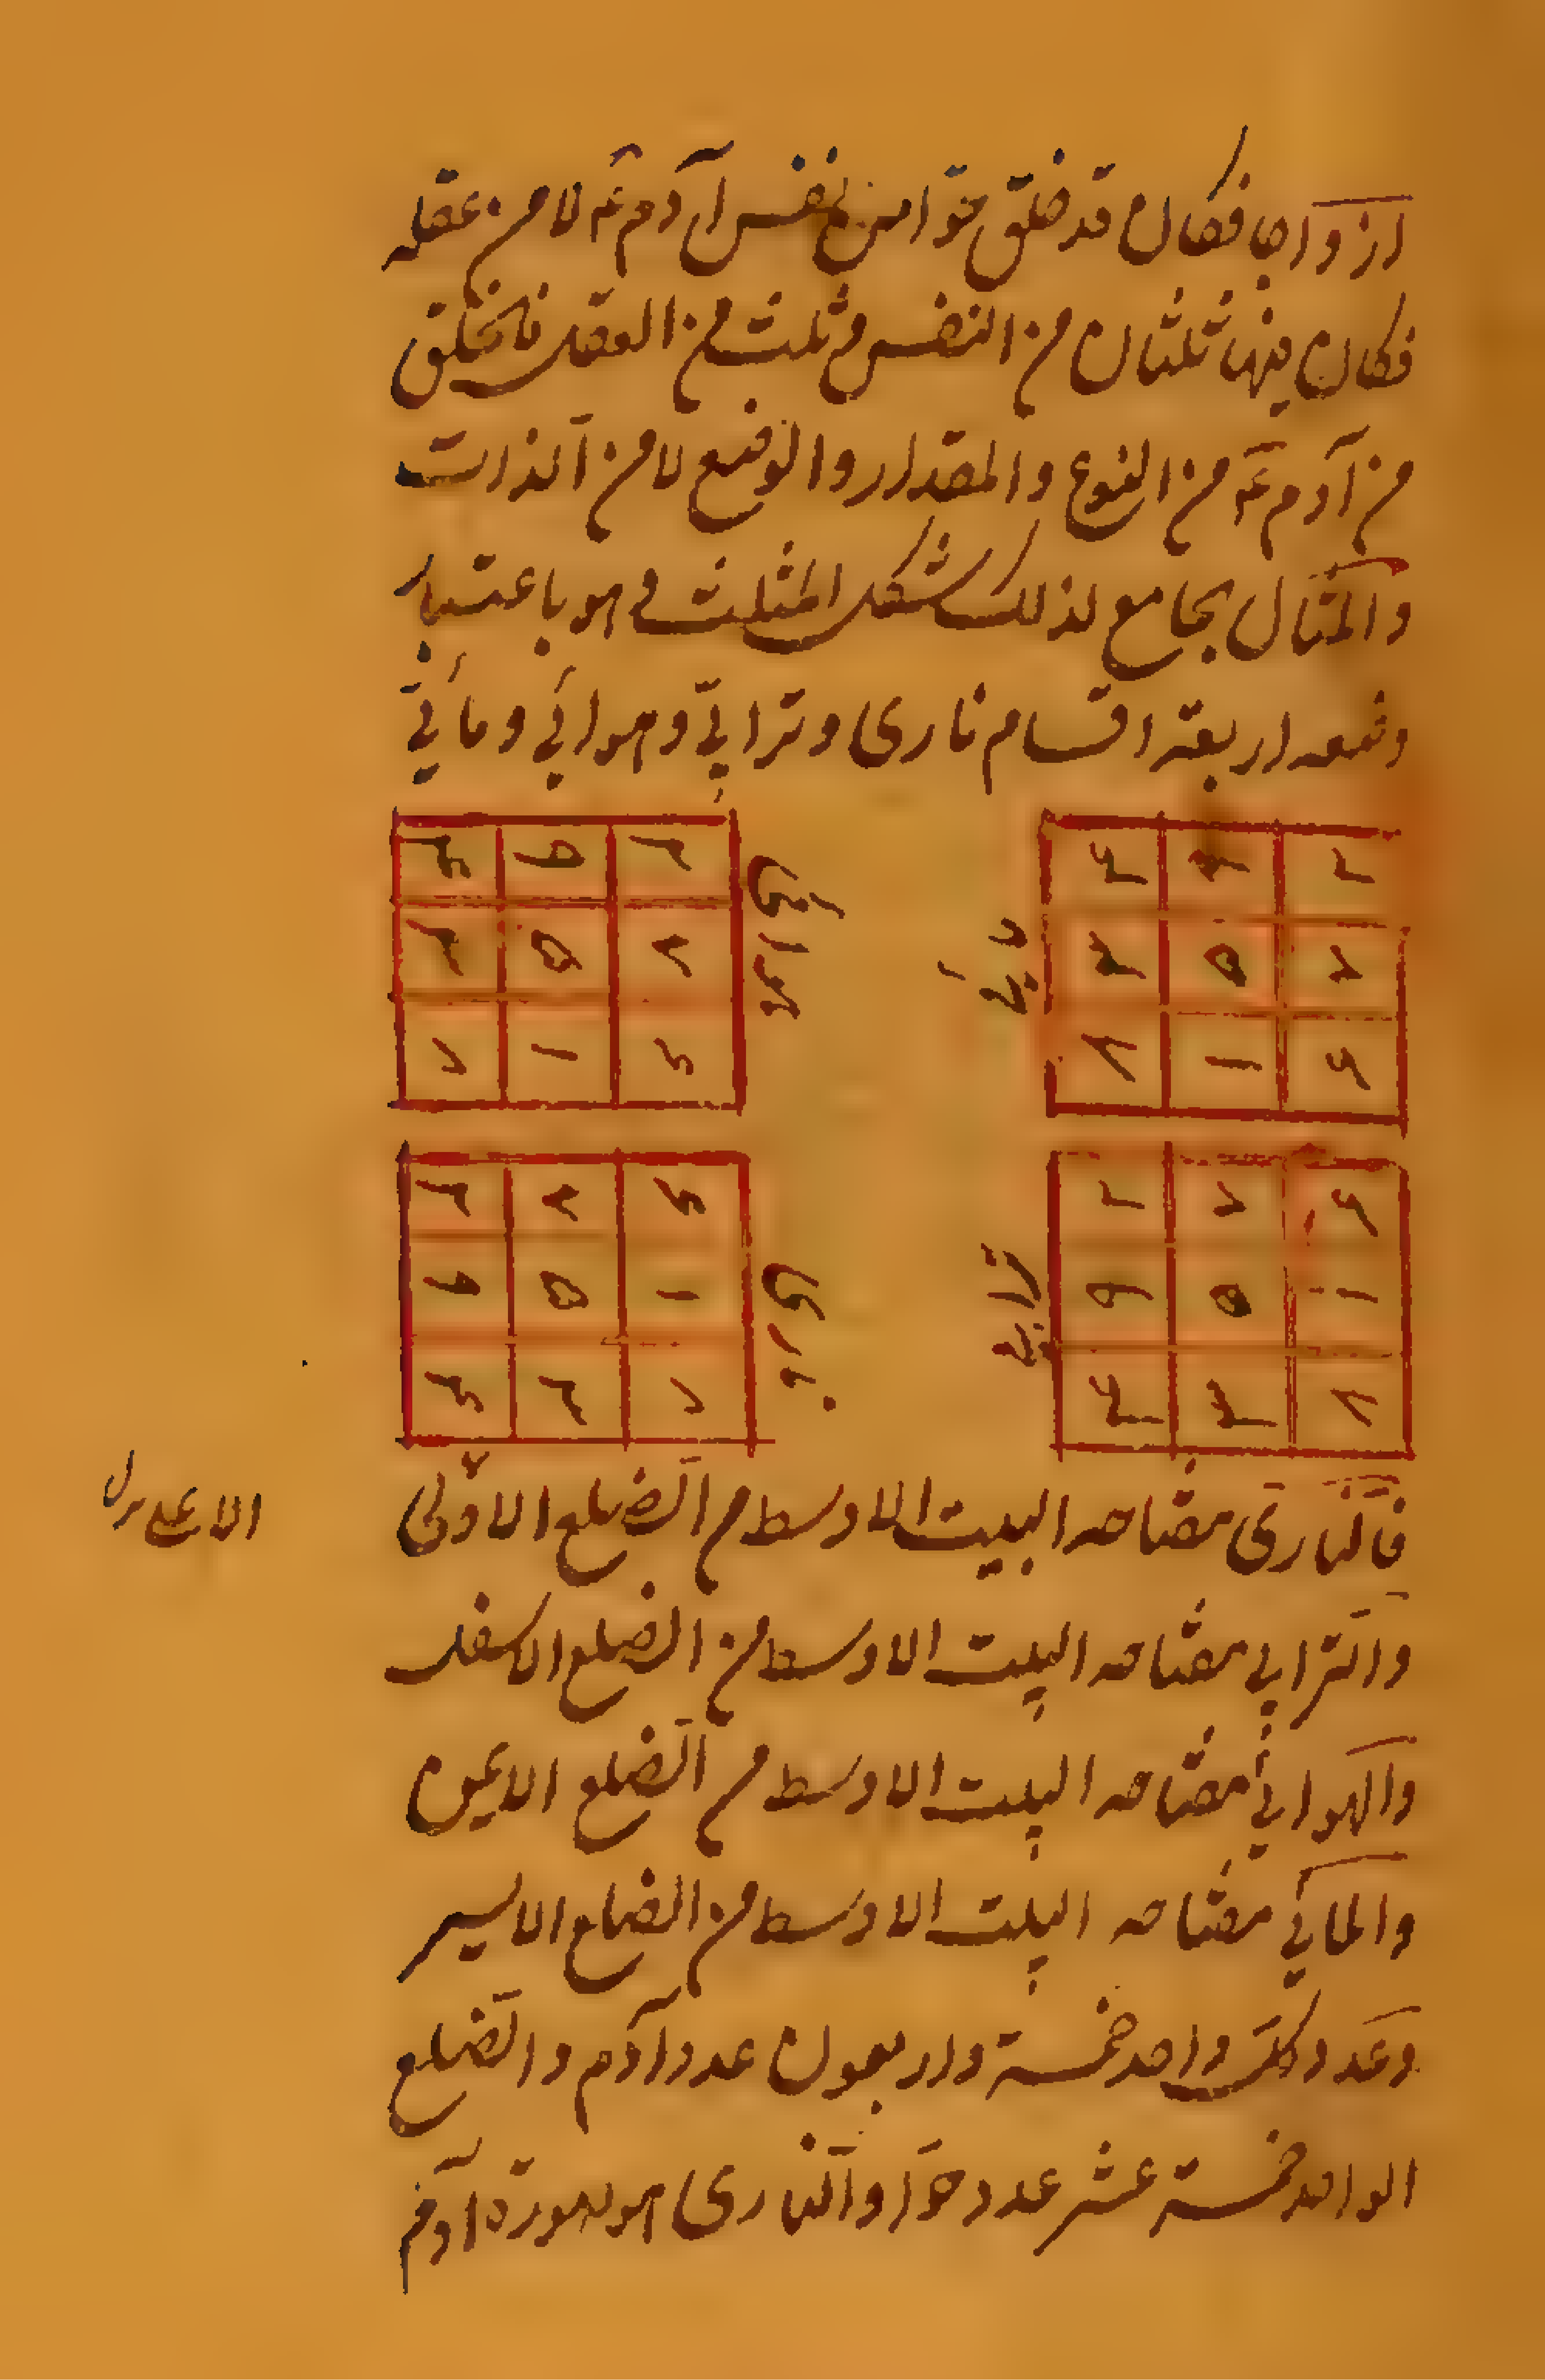 ازواجا فكان قد خلق حوّا من نفس آدم ع لا من عقله
فكان فيها ثلثان من النفس و ثلث من العقل فالخلق
من آدم ع من النوع والمقدار والوضع لا من الذات
والمثال بجامع لذلك شكل المثلث و هو باعتبار
وضعه اربعة اقسام نارى وترابيّ وهوائي ومائيّ
٤ ٩ ٢
٣ ٥ ٧
٨ ١ ٦
مائي
٤ ٩ ٢
٣ ٥ ٨
٧ ١ ٦
هوائي
٢ ٧ ٦
٩ ٥ ١
٤ ٣ ٨
ترابي
٢ ٦
٩ ٥ ١
٤ ٣ ٧
نارى
فالنارى مفتاحه البيت الاوسط من الضلع الاولى
الاعلى
والترابي مفتاحه البيت الاوسط من الضلع الاسفل
والهوائي مفتاحه البيت الاوسط من الضلع الايمن
والمائي مفتاحه البيت الاوسط من الضلع الايسر
وعدد كل واحد خمسة واربعون عدد آدم والضلع
الواحد خمسة عشر عدد حوّا والنارى هو صورة آدم